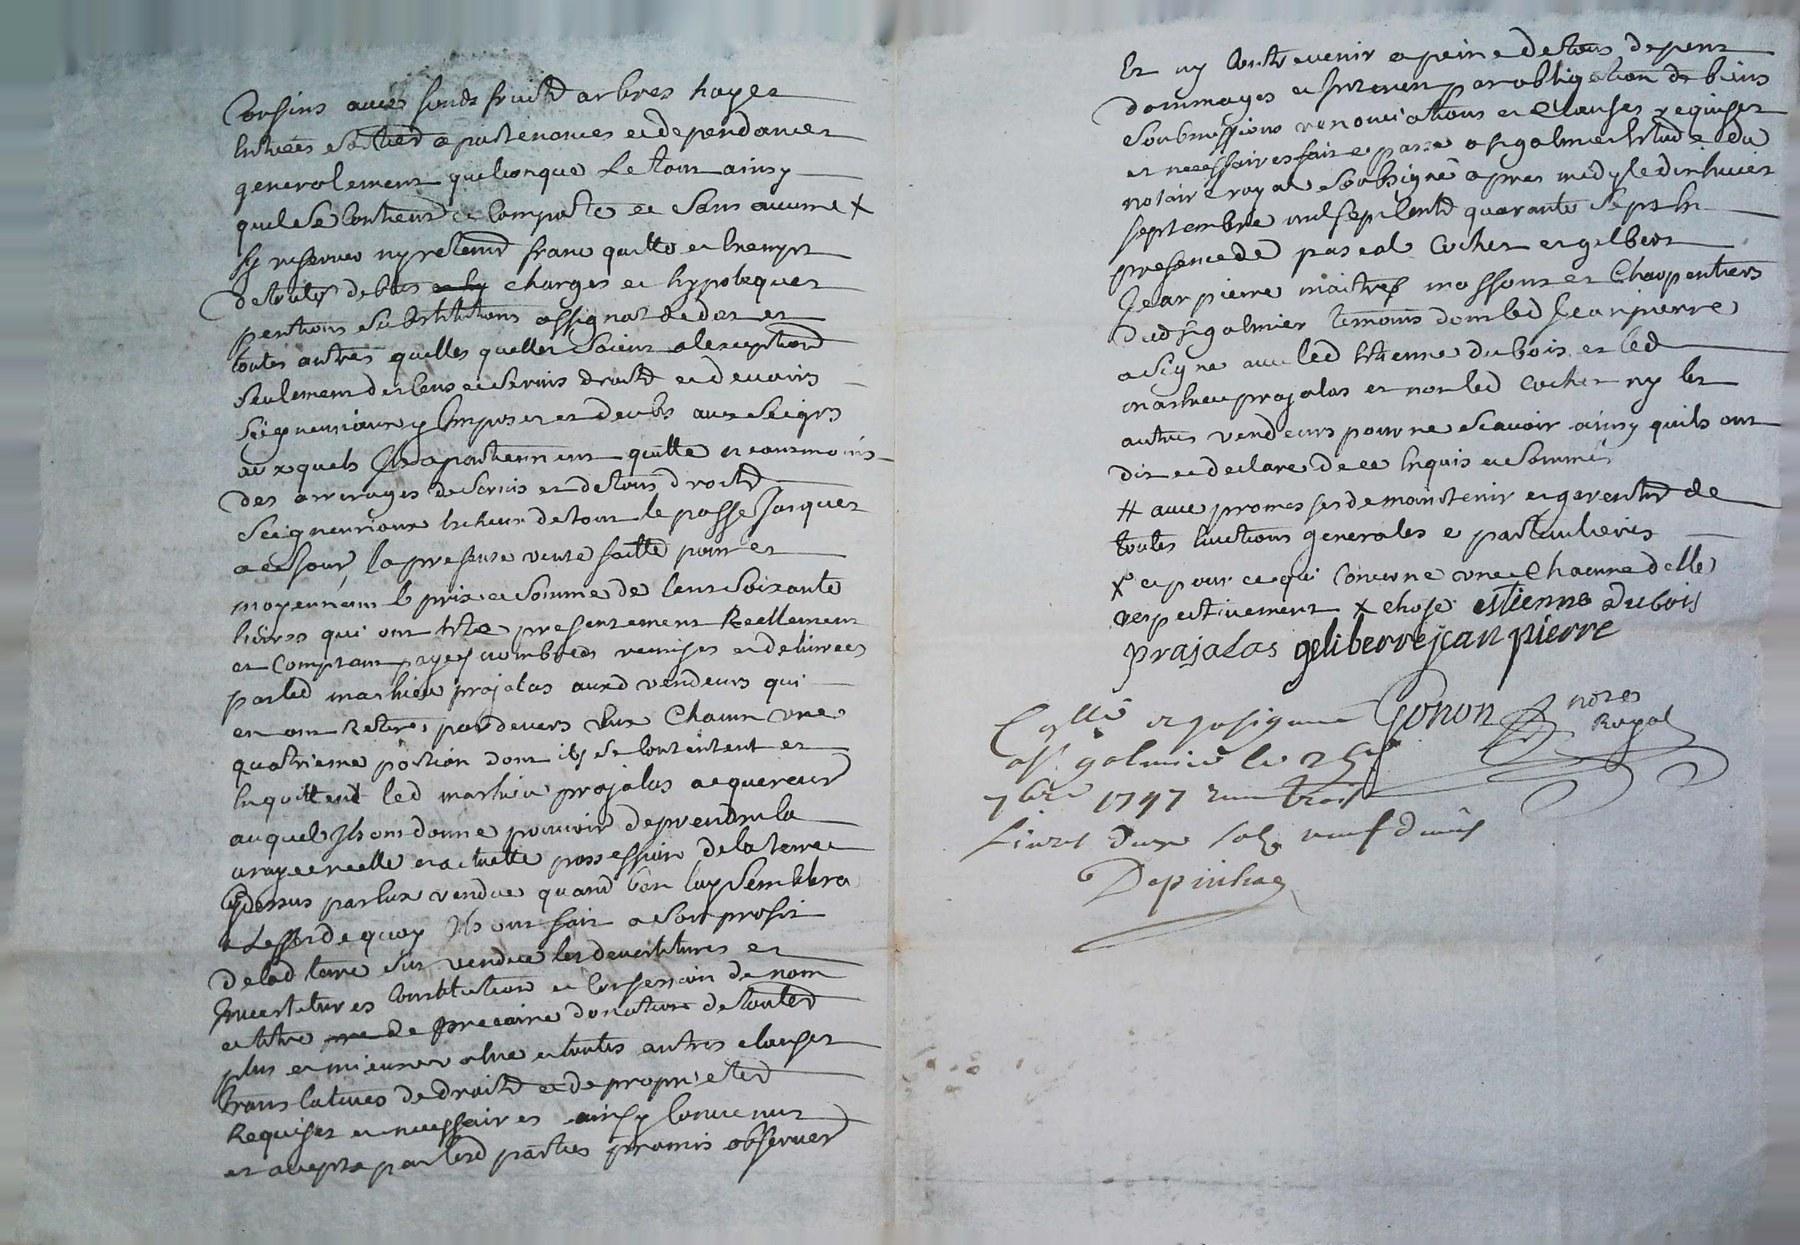 Confins avec fonds fruitd arbres hayes
Entrées sortied apartenances et dependances
generalement quelconque Le tout ainsy
quil se Contient et Comporte et sans aucune X
sy reserver ny retenir franc quitte et Exempt
de toutes debtes charges et hypoteques
pentions substitutions assignat de dot et
toutes autres quelles quelles soient alexception
seulement des Cens et servis droitd et devoirs
seigneuriaux y Imposez et deubs aux seigrs
auxquels Ils apartiennent quitte neantmoins
des arrerages de servis et de tous droitd
seigneuriaux Echeus de tout le passé Jusques
a ce Jour, la presente vente faitte pour et
moyennant le prix et somme de Cent soixante
livres qui ont Eté presentement Reellement
et Comptant payez nombrées remises et delivrées
par led mathieu prajalas auxd vendeurs qui
en ont Retiré pardevers Eux Chacun une
quatrieme portion dont ils se Contentent et
Enquittent led mathieu prajalas acquereur
auquel Ils ont donné pouvoir de prendre la
vraye reelle et actuelle possession de la terre
Cydessus par Eux vendue quand bon luy semblera
a Leffet de quoy Ils ont fait a son profit
de lad terre sus vendue les devestitures et
Investitures Constitution et Confession de nom
et titre de precaire donation de touted
plus et mieux value et toutes autres clauses
translatives de droitd et de proprieted
Requises et necessaires ainsy Convenus
et accepté par lesd parties promis observer
Et ny Contrevenir a peine de tous depens
dommages et Interest par obligation de biens
soubmissions renonciations et Clauses requises
et necessaires fait et passé a st galmier Etude du
notaire royal soubsigné apres midy le dixhuict
septembre mil sept Centd quarante sept En
presence de pascal Cocher et gelibert
Jean pierre maitres massons et Charpentiers
dud st galmier temoins dont led Jean pierre
a signé avec led Etienne dubois et led
mathieu prajalas et non led Cocher ny les
autres vendeurs pour ne scavoir ainsy quils ont
dit et declaré de ce Enquis et sommés
# avec promesses de maintenir et garentir de
toutes Evictions generales et particulieres
X et pour ce qui Concerne une Chacune delle
respectivement X chose estienne dubois
prajalas geliberre jean pierre
Gonon nore
Royal
Collé a st galmier le 25e
7bre 1747 Recu trois
livres douze sols neuf deniers
Depinhac